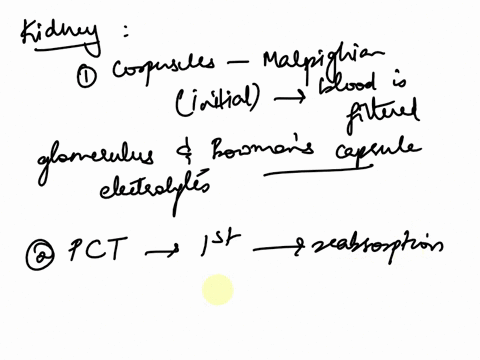 Kidney :
① Corpuscles — Malpighian
(initial) → blood is
filtered
glomerulus & Bowman's capsule
electrolytes
② PCT → 1st → reabsorption